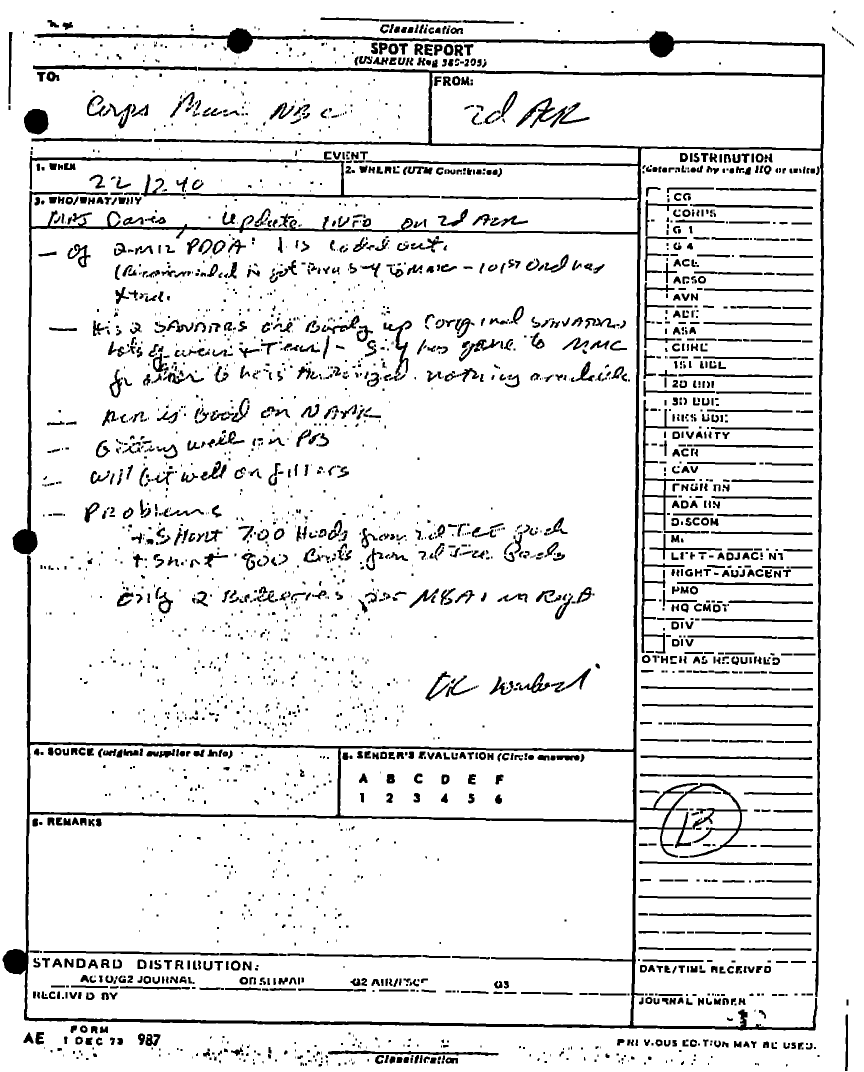 Classification
SPOT REPORT
(USAREUR Reg 380-205)
TO:
FROM:
Corps Main NBC
2d ACR
EVENT
1. WHEN
22 1240
2. WHERE (UTM Coordinates)
3. WHO/WHAT/WHY
Davis, Update INFO on 2d ACR
— Of 2-M12 PDDA' 1 is coded out.
(Recommended to get S-4 to MMC - 101st Ord has
Xtra.
— His 2 are Barely up (original
lots of wear + Tear) - S-4 has gone to MMC
for other 6 he is Authorized. nothing available
— ACR is Good on NAAK
— Getting well on PB
— Will Get well on fillers
— Problems
+ Short 700 Hoods from
+ Short 800 from
Only 2 Batteries per M8A1 in Regt
DISTRIBUTION
(determined by using HQ or units)
CG
CORPS
G 1
G 4
ACE
ADSO
AVN
ADE
ASA
1ST BDE
2D BDE
3D BDE
RES BDE
DIVARTY
ACR
CAV
ENGR BN
ADA BN
DISCOM
MI
LEFT-ADJACENT
RIGHT-ADJACENT
PMO
HQ CMDT
DIV
DIV
OTHER AS REQUIRED
4. SOURCE (original supplier of info)
5. SENDER'S EVALUATION (Circle answers)
A B C D E F
1 2 3 4 5 6
6. REMARKS
B
STANDARD DISTRIBUTION:
ACTO/G2 JOURNAL
G2 AIR/FSCE
G3
RECEIVED BY
DATE/TIME RECEIVED
JOURNAL NUMBER
AE FORM 1 DEC 73 987
PREVIOUS EDITION MAY BE USED.
Classification